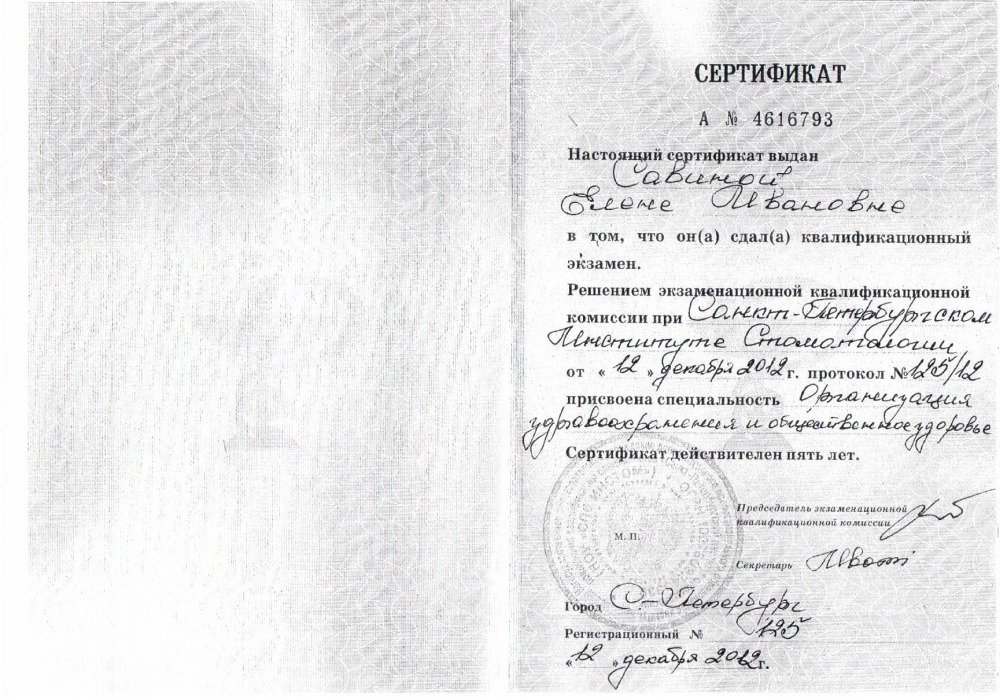 СЕРТИФИКАТ
А № 4616793
Настоящий сертификат выдан
Савиной
Елене Ивановне
в том, что он(а) сдал(а) квалификационный
экзамен.
Решением экзаменационной квалификационной
комиссии при Санкт-Петербургском
Институте Стоматологии
от « 12 » декабря 2012 г. протокол № 125/12
присвоена специальность Организация
здравоохранения и общественное здоровье
Сертификат действителен пять лет.
Председатель экзаменационной
квалификационной комиссии
М. П.
Секретарь
Город С.-Петербург
Регистрационный № 125
« 12 » декабря 2012 г.